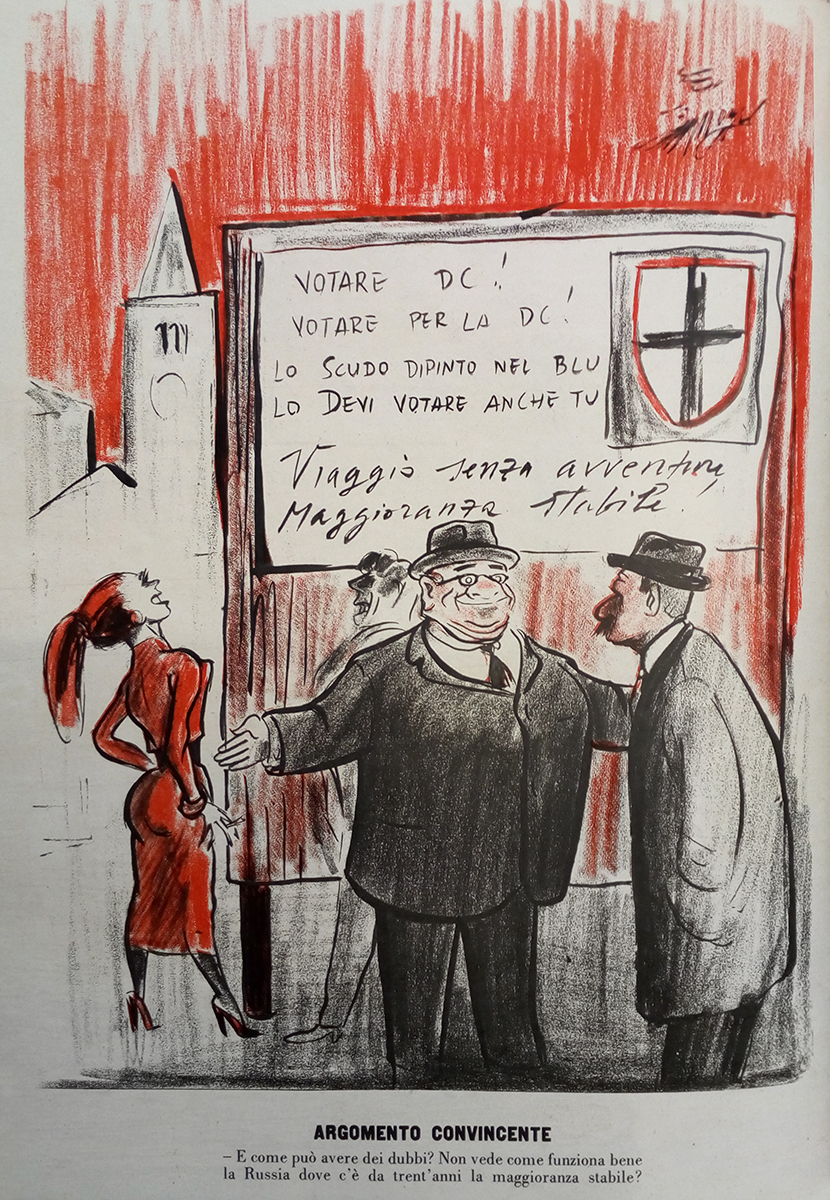 VOTARE DC!
VOTARE PER LA DC!
LO SCUDO DIPINTO NEL BLU
LO DEVI VOTARE ANCHE TU
Viaggio senza avventura
Maggioranza stabile!
ARGOMENTO CONVINCENTE
– E come può avere dei dubbi? Non vede come funziona bene
la Russia dove c'è da trent'anni la maggioranza stabile?